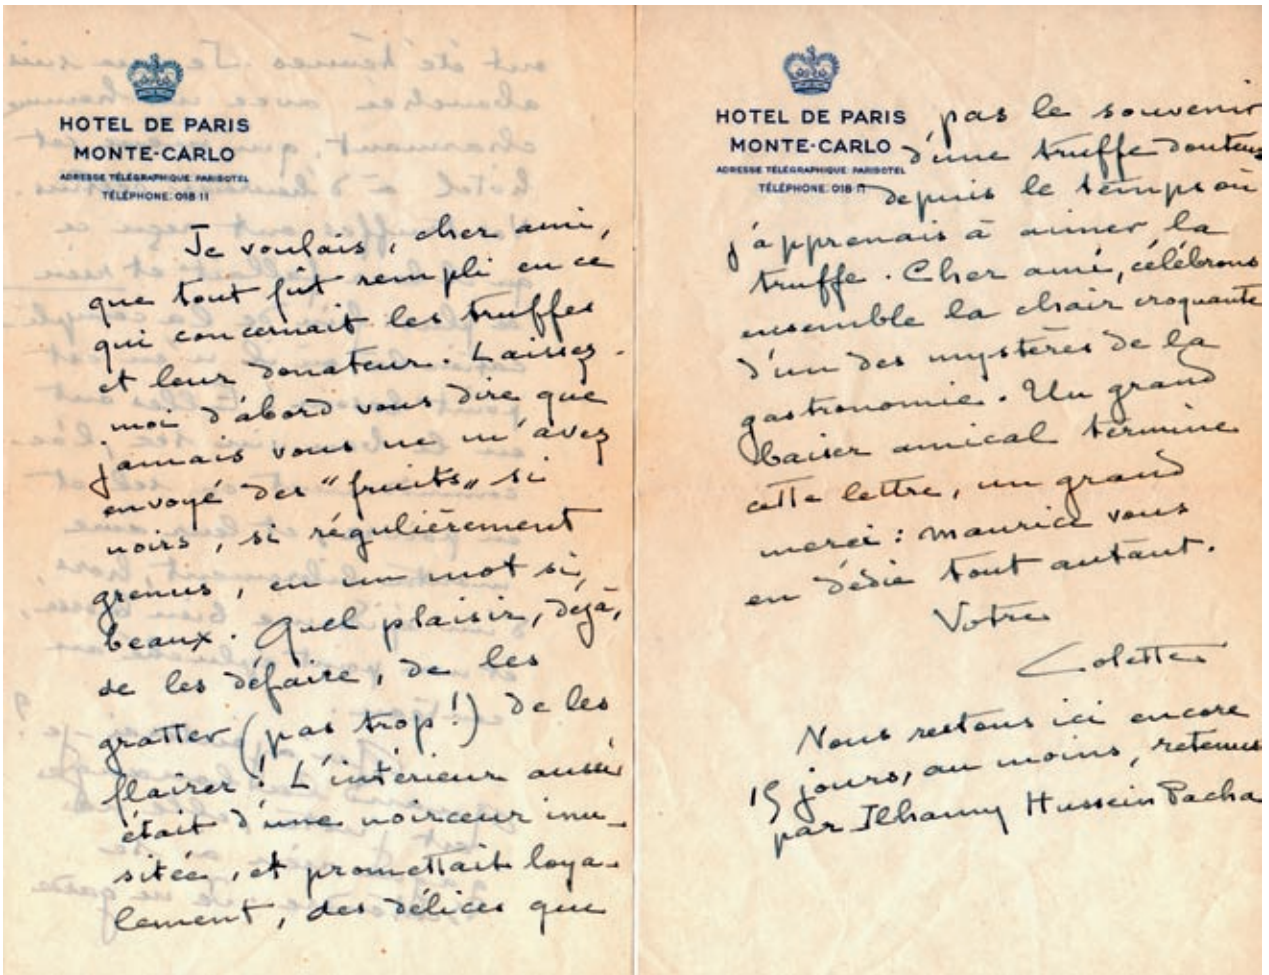 HOTEL DE PARIS
MONTE-CARLO
ADRESSE TÉLÉGRAPHIQUE: PARISOTEL
TÉLÉPHONE: 018 11
Je voulais, cher ami,
que tout fût rempli en ce
qui concernait les truffes
et leur donateur. Laissez-
moi d'abord vous dire que
jamais vous ne m'avez
envoyé des "fruits" si
noirs, si régulièrement
grenus, en un mot si,
beaux. Quel plaisir, déjà,
de les défaire, de les
gratter (pas trop!) de les
flairer! L'intérieur aussi
était d'une noirceur inu-
sitée, et promettait loya-
lement, des délices que
HOTEL DE PARIS
MONTE-CARLO
ADRESSE TÉLÉGRAPHIQUE: PARISOTEL
TÉLÉPHONE: 018 11
pas le souvenir
d'une truffe douteuse
depuis le temps où
j'apprenais à aimer la
truffe. Cher ami, célébrons
ensemble la chair croquante
d'un des mystères de la
gastronomie. Un grand
baiser amical termine
cette lettre, un grand
merci: Maurice vous
en dédie tout autant.
Votre
Colette
Nous restons ici encore
15 jours, au moins, retenus
par Ilhamy Hussein Pacha